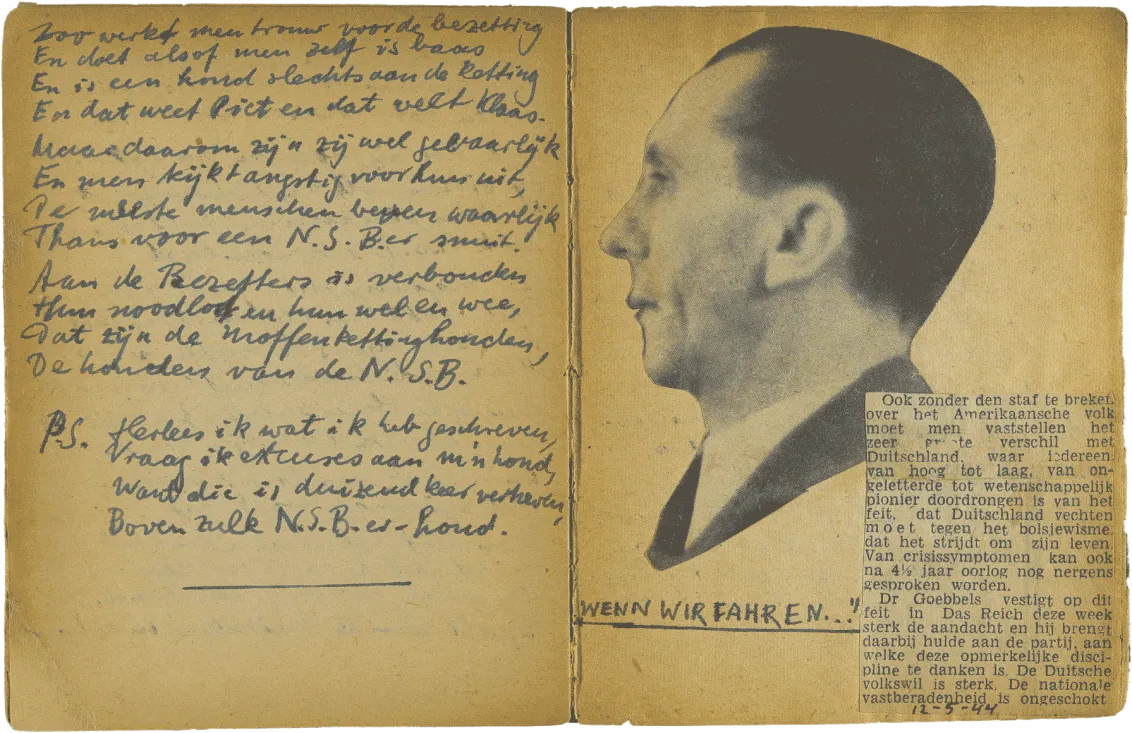 Zoo werkt men trouw voor de bezetting
En doet alsof men zelf is baas
En is een hond slechts aan de ketting
En dat weet Piet en dat weet Klaas.
Maar daarom zijn zij wel gevaarlijk
En men kijkt angstig voor hun uit,
De meeste menschen beven waarlijk
Thans voor een N.S.B.er snuit.
Aan de Bezetters is verbonden
Hun noodlot en hun wel en wee,
Dat zijn de Moffenkettinghonden,
De honden van de N.S.B.
P.S. Herlees ik wat ik heb geschreven,
Vraag ik excuses aan m'n hond,
Want die is duizend keer verheven,
Boven zulk N.S.B-er-hond.
"WENN WIR FAHREN..."
Ook zonder den staf te breken
over het Amerikaansche volk
moet men vaststellen het
zeer groote verschil met
Duitschland, waar iedereen
van hoog tot laag, van on-
geletterde tot wetenschappelijk
pionier doordrongen is van het
feit, dat Duitschland vechten
moet tegen het bolsjewisme,
dat het strijdt om zijn leven.
Van crisissymptomen kan ook
na 4½ jaar oorlog nog nergens
gesproken worden.
Dr Goebbels vestigt op dit
feit in Das Reich deze week
sterk de aandacht en hij brengt
daarbij hulde aan de partij, aan
welke deze opmerkelijke disci-
pline te danken is. De Duitsche
volkswil is sterk. De nationale
vastberadenheid is ongeschokt
12-5-44